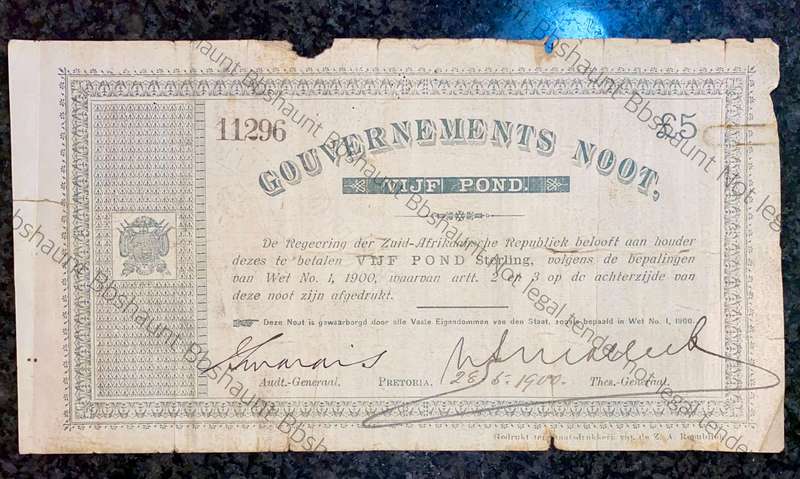 11296
£5
GOUVERNEMENTS NOOT,
VIJF POND.
De Regeering der Zuid-Afrikaansche Republiek belooft aan houder
dezes te betalen VIJF POND Sterling, volgens de bepalingen
van Wet No. 1, 1900, waarvan artt. 2 en 3 op de achterzijde van
deze noot zijn afgedrukt.
Deze Noot is gewaarborgd door alle Vaste Eigendommen van den Staat, zooals bepaald in Wet No. 1, 1900.
Audt.-Generaal. PRETORIA. 28/5 1900. Thes.-Generaal.
Gedrukt ter Staatsdrukkerij van de Z. A. Republiek
Bbshaunt Not legal tender